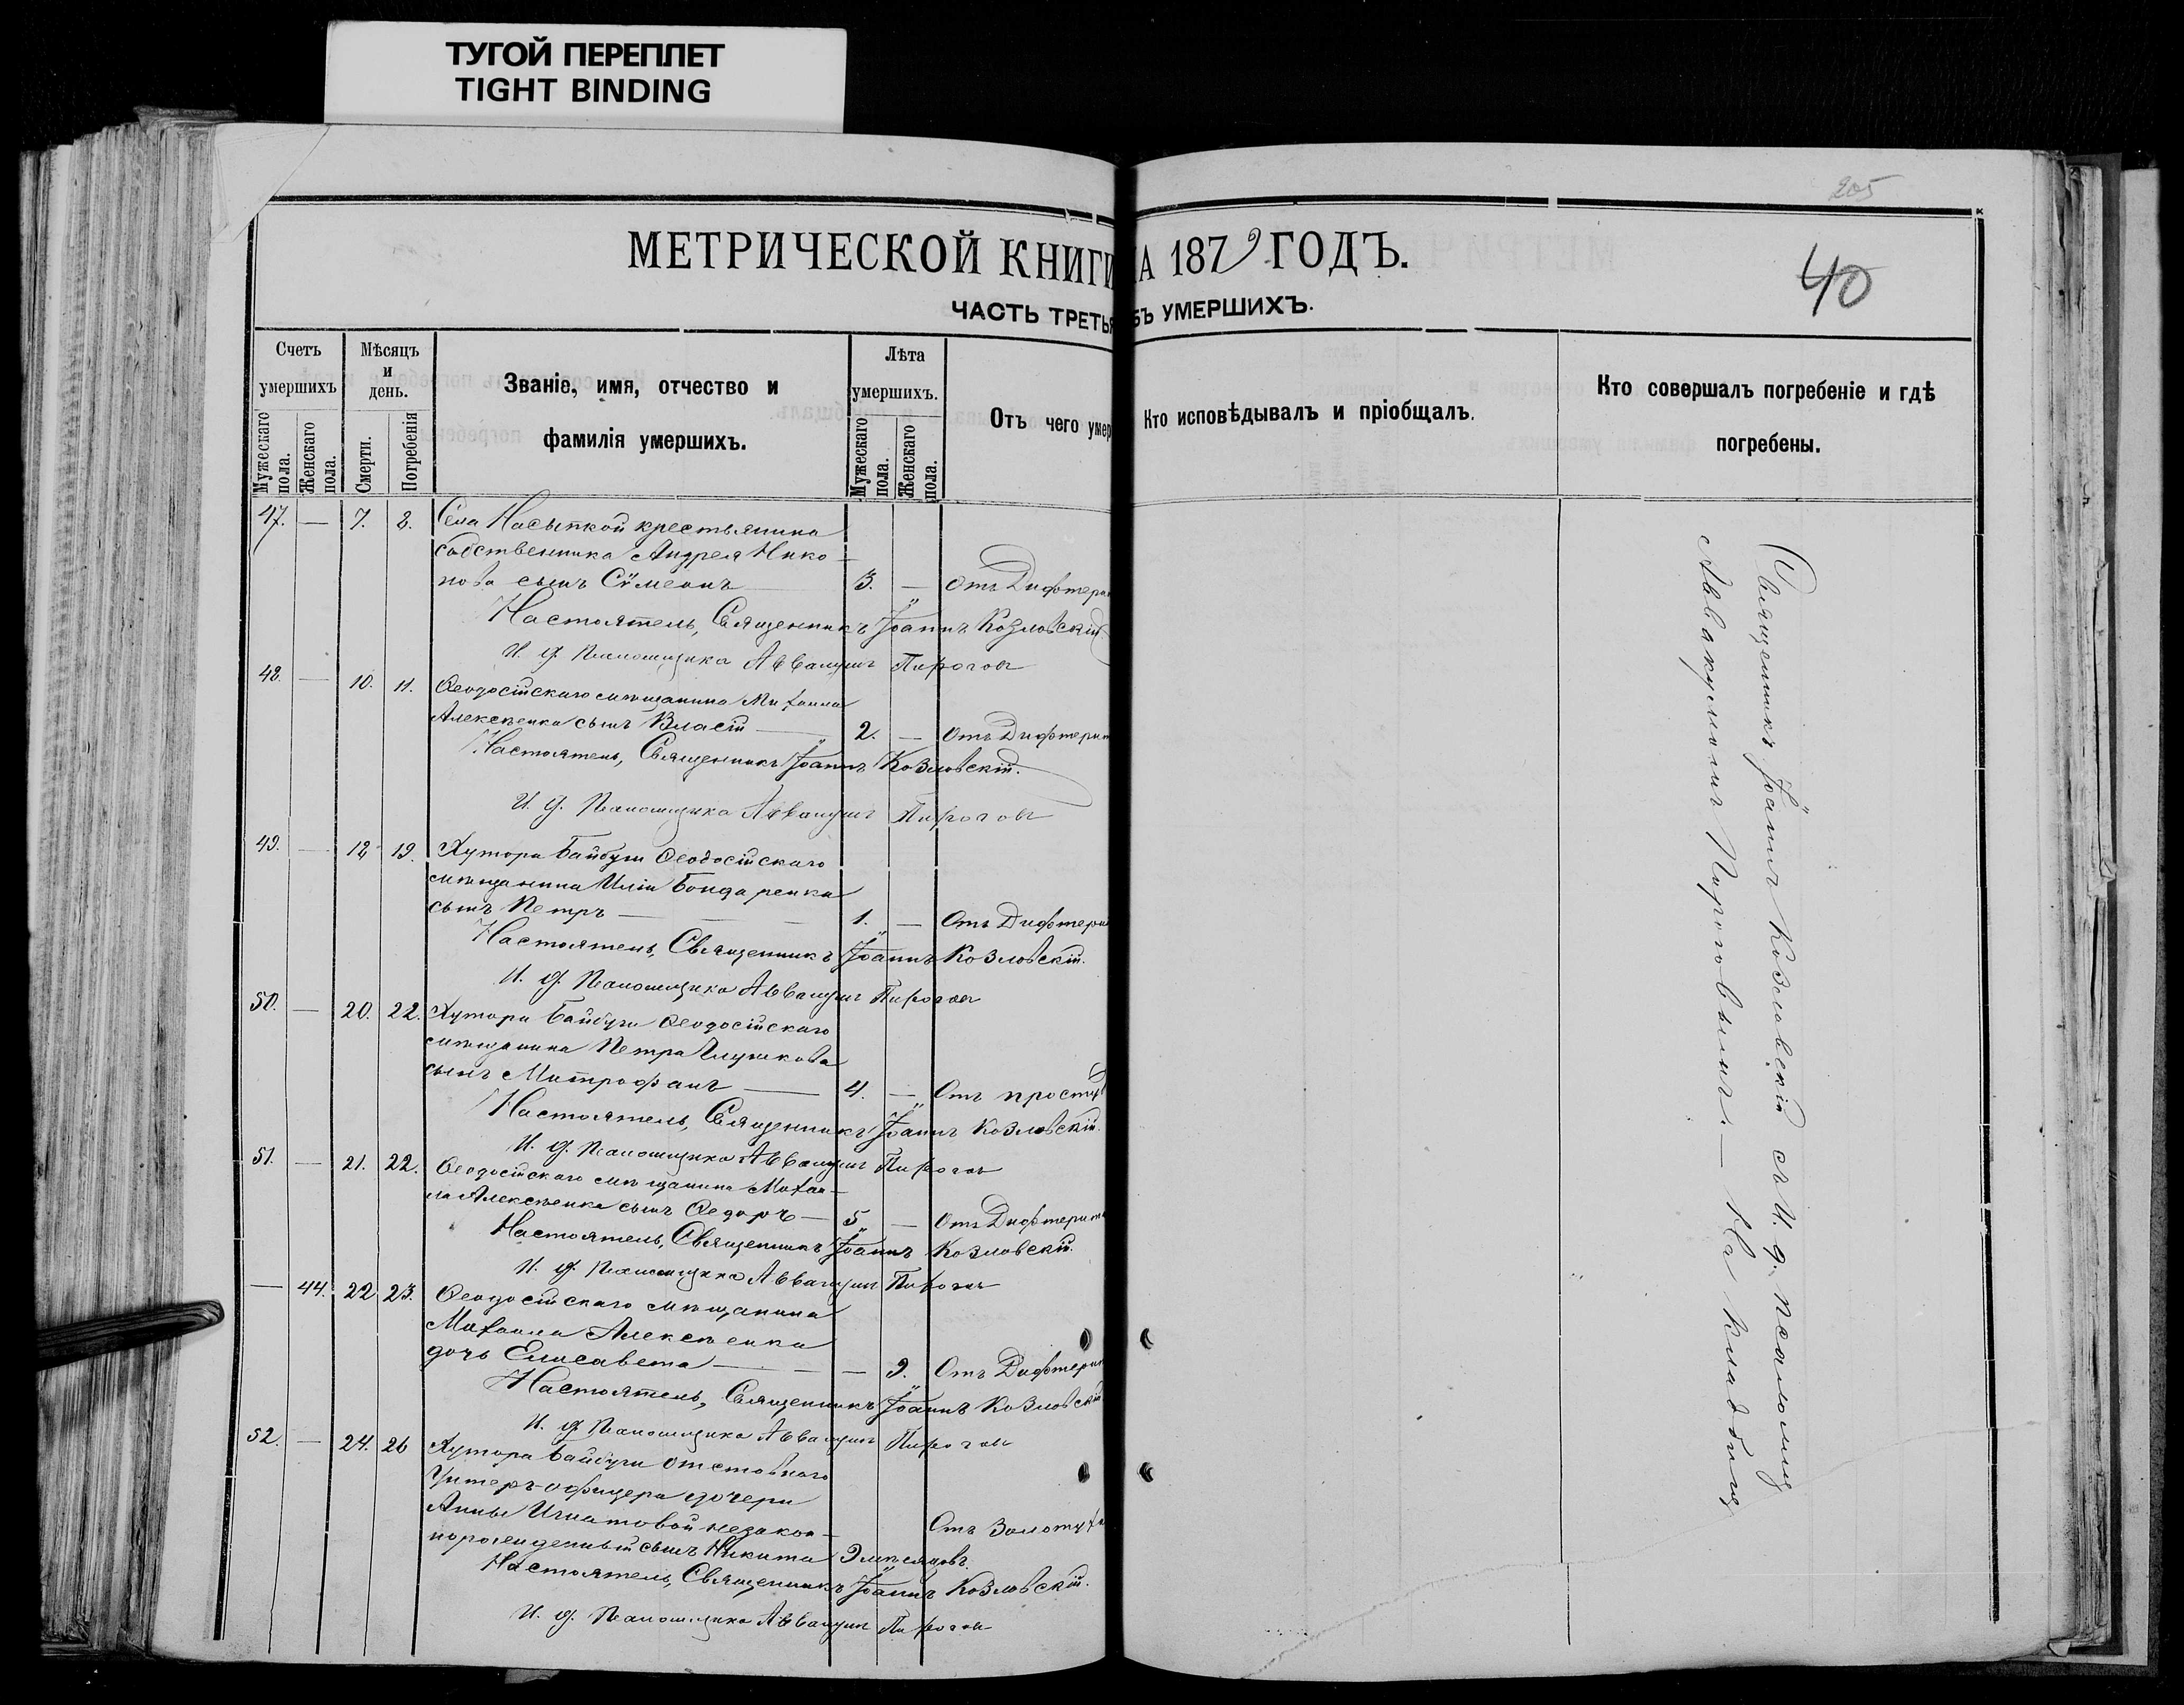 ТУГОЙ ПЕРЕПЛЕТ
TIGHT BINDING
205
40
МЕТРИЧЕСКОЙ КНИГИ
А 1879 ГОДЪ.
ЧАСТЬ ТРЕТЬЯ
БЪ УМЕРШИХЪ.
Счетъ умершихъ
Мужескаго пола.
Женскаго пола.
Мѣсяцъ и день.
Смерти.
Погребенія
Званіе, имя, отчество и
фамилія умершихъ.
Лѣта умершихъ.
Мужескаго пола.
Женскаго пола.
Отъ чего умер
Кто исповѣдывалъ и пріобщалъ.
Кто совершалъ погребеніе и гдѣ
погребены.
47. — 7. 8. Села Насыпкой крестьянина
собственника Андрея Нико-
нова сынъ Сѵмеонъ 3. — Отъ Дифтери
Настоятель, Священникъ Іоаннъ Козловскій
И. д. Псаломщика Аввакумъ Пирогов
48. — 10. 11. Ѳеодосійскаго мѣщанина Михаила
Алексѣенка сынъ Власій — 2. — Отъ Дифтерит
Настоятель, Священникъ Іоаннъ Козловскій.
И. д. Псаломщика Аввакумъ Пирогов
49. — 12 19. Хутора Байбуги Ѳеодосійскаго
мѣщанина Иліи Бондаренка
сынъ Петръ — 1. — Отъ Дифтери
Настоятель, Священникъ Іоаннъ Козловскій.
И. д. Псаломщика Аввакумъ Пирогов
50. — 20. 22. Хутора Байбуги Ѳеодосійскаго
мѣщанина Петра Глушкова
сынъ Митрофанъ — 4. — Отъ просту
Настоятель, Священникъ Іоаннъ Козловскій.
И. д. Псаломщика Аввакумъ Пирогов
51. — 21. 22. Ѳеодосійскаго мѣщанина Михаи-
ла Алексѣенка сынъ Ѳедоръ — 5 — Отъ Дифтерит
Настоятель, Священникъ Іоаннъ Козловскій.
И. д. Псаломщика Аввакумъ Пирогов
— 44. 22 23. Ѳеодосійскаго мѣщанина
Михаила Алексѣенка
дочь Елисавета — — 9. Отъ Дифтери
Настоятель, Священникъ Іоаннъ Козловскій
И. д. Псаломщика Аввакумъ Пирогов
52. — 24. 26 Хутора Байбуги отставнаго
Унтеръ-офицера дочери
Анны Игнатовой незакон-
норожденный сынъ Никита 9 мѣсяцовъ. Отъ Золоту
Настоятель, Священникъ Іоаннъ Козловскій.
И. д. Псаломщика Аввакумъ Пирогов
Священникъ Іоаннъ Козловскій съ И. д. псаломщ
Аввакумомъ Пироговымъ. — На кладбищ